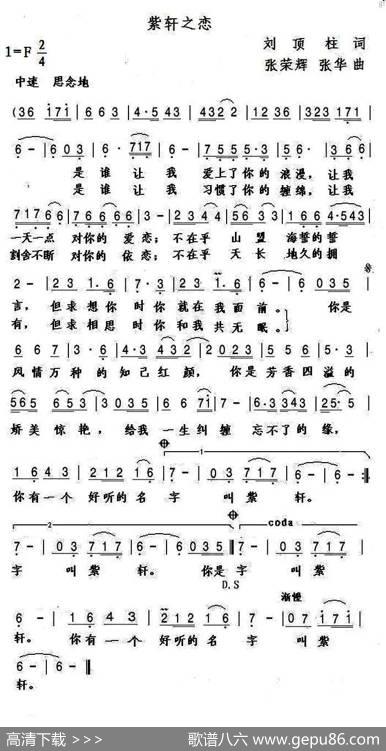 紫轩之恋
1=F 2/4
刘 顶 柱 词
张荣辉 张华 曲
中速 思念地
(36 1̇71̇ | 663 | 4·543 | 4322 | 1716 | 323 171 |
6 - | 603 | 6· 717 | 6 - | 7555·5 | 3·5 353 |
是 谁 让 我 爱上了你的 浪漫, 让我
是 谁 让 我 习惯了你的 缠绵, 让我
717666 | 766663 | 3 - | 2344 | 5633 | 166 4·543 |
一天一点 对你的 爱恋; 不在乎 山盟 海誓的誓
割舍不断 对你的 依恋; 不在乎 天长 地久的拥
2 - | 23 1·6 | 717 6 | 23 1·6 | 6 - | 6035 |
言, 但求想你 时你就在我面前。 你是
有, 但求相思 时你和我 共无眠。
667 | 3·3 432 | 2023 | 535 | 565 | 5·3 |
风情万种的知己红颜, 你是芳香四溢的
565 653 | 3035 | 667i | 7·2 | 3·432 | 25·5 |
娇美惊艳, 给我一生纠缠 忘不了的缘,
1643 | 212 16 | 7 - | 03 717 | 6 - | 6035 :|
你有一个 好听的名 字 叫紫 轩。
7 - | 03 717 | 6 - | 6035 | 7 - | 03 717 |
字 叫紫 轩。 你是字 叫紫
coda
D.S
渐慢
6 - | 1643 | 212 16 | 7 - | 0171 |
轩。 你有一个 好听的名 字 叫紫
6 - | 6 - :|
轩。
高清下载 >>>
歌谱八六 www.gepu86.com